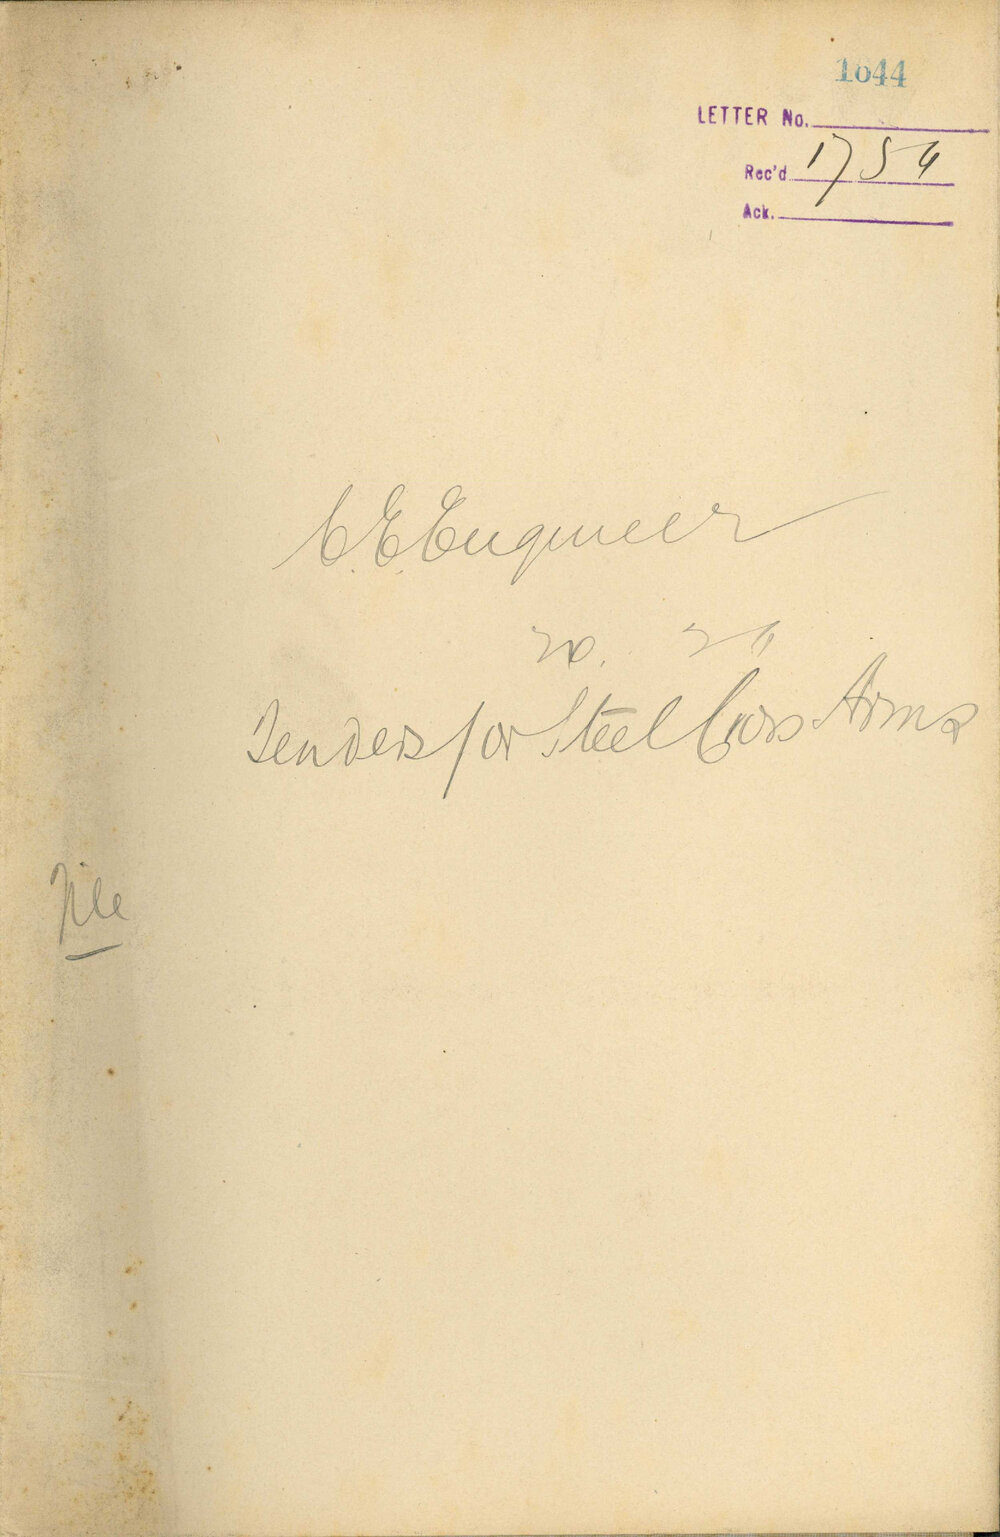 1644
LETTER No.
Rec'd 17 5 4
Ack.
C. E. Engineer
Tenders for Steel Cross Arms
File